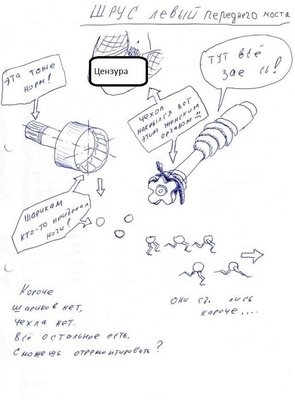 ШРУС левый переднего моста
Эта тоже
норм!
Цензура
ТУТ ВСЁ
зае сь!
Чехол
накрылся вот
этим женским
органом
Шарикам
кто-то приделал
ноги!
Они съ лись
короче,...
Короче
шариков нет,
чехла нет.
Всё остальное есть.
Сможешь отремонтировать?